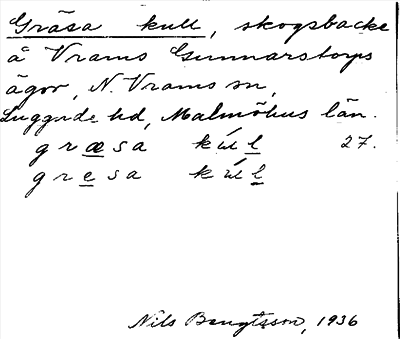 Gräsa kull, skogsbacke
å Vrams Gunnarstorps
ägor, N. Vrams sn,
Luggude hd, Malmöhus län.
græsa kúl 27.
gresa kúl
Nils Bengtsson, 1936